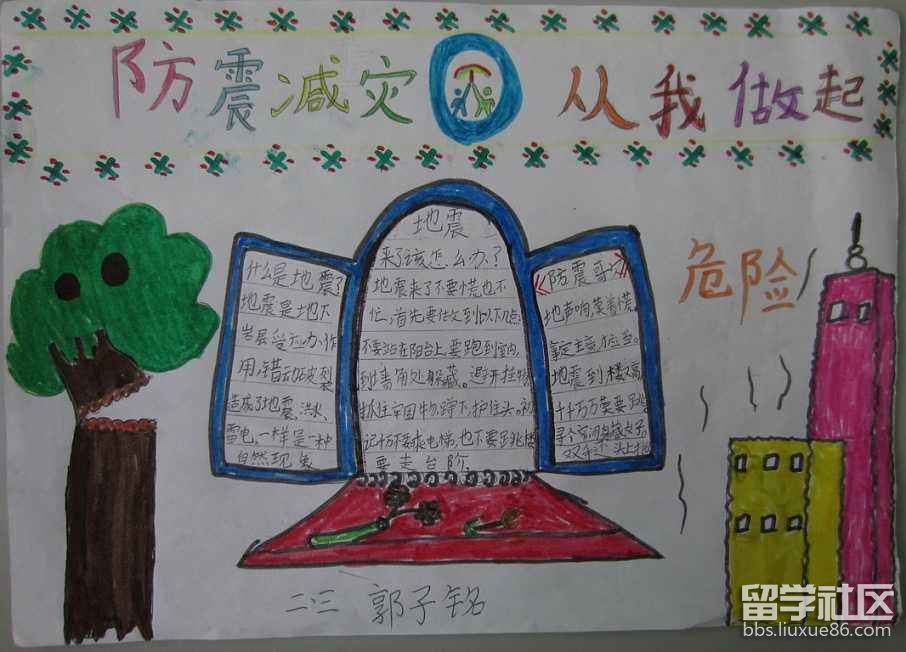 防震减灾 从我做起
什么是地震?
地震是地下
岩层受应力作
用,错动破裂
造成了地震,洪水
雷电,一样是一种
自然现象
地震
来了该怎么办?
地震来了不要慌也不
忙,首先要做到以下几点:
不要站在阳台上,要跑到室内,
到墙角处躲藏。避开挂物
抓住牢固物,蹲下,护住头,
记千万不要乘电梯,也不要
要走台阶
《防震歌》
地声响,莫着慌。
拿定主意
地震到 楼
千千万万莫要跳。
寻个空间
双手 头上抱
危险
!
二.三 郭子铭
留学社区
bbs.liuxue86.com